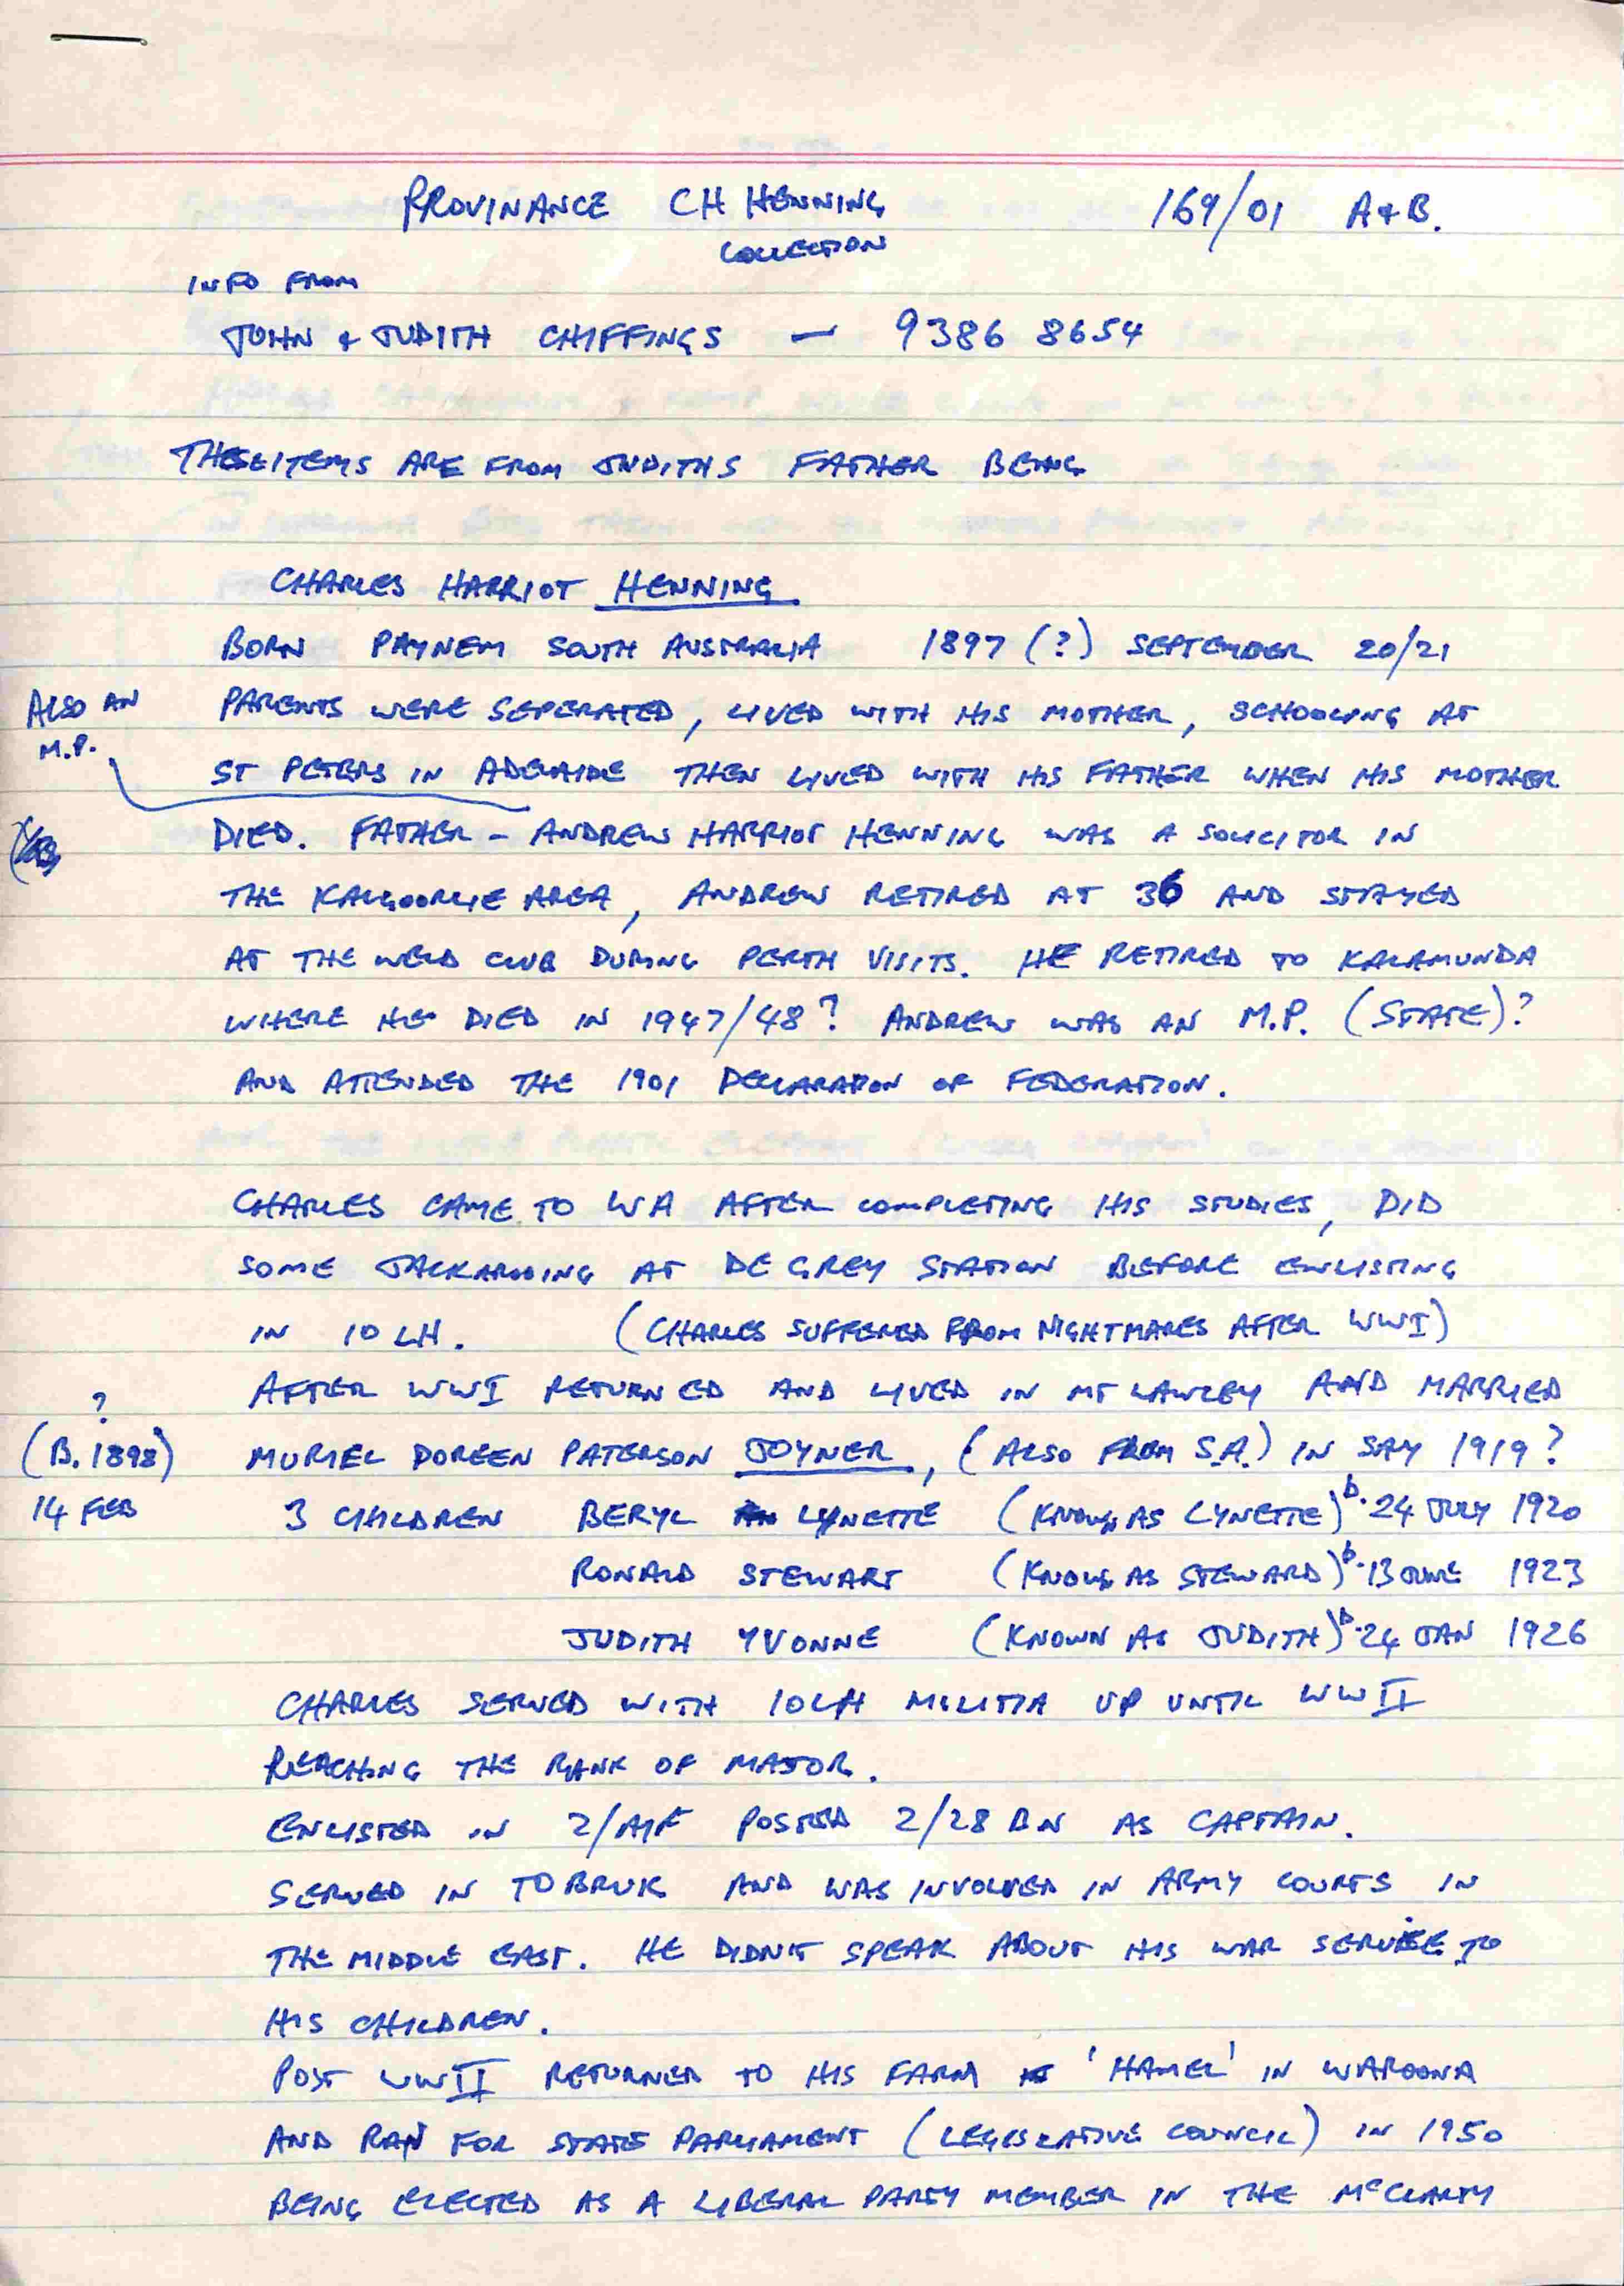 PROVINANCE CH HENNING 169/01 A & B.
COLLECTION
INFO FROM
JOHN & JUDITH CHIFFINGS — 9386 8654
THESE ITEMS ARE FROM JUDITHS FATHER BEING
CHARLES HARRIOT HENNING.
BORN PAYNEM SOUTH AUSTRALIA 1897 (?) SEPTEMBER 20/21
ALSO AN
M.P.
PARENTS WERE SEPERATED, LIVED WITH HIS MOTHER, SCHOOLING AT
ST PETERS IN ADELAIDE THEN LIVED WITH HIS FATHER WHEN HIS MOTHER
DIED. FATHER - ANDREW HARRIOT HENNING WAS A SOLICITOR IN
THE KALGOORLIE AREA, ANDREW RETIRED AT 36 AND STAYED
AT THE WELD CLUB DURING PERTH VISITS. HE RETIRED TO KALAMUNDA
WHERE HE DIED IN 1947/48? ANDREW WAS AN M.P. (STATE)?
AND ATTENDED THE 1901 DECLARATION OF FEDERATION.
CHARLES CAME TO WA AFTER COMPLETING HIS STUDIES, DID
SOME JACKAROOING AT DE GREY STATION BEFORE ENLISTING
IN 10 LH. (CHARLES SUFFERED FROM NIGHTMARES AFTER WWI)
AFTER WWI RETURNED AND LIVED IN MT LAWLEY AND MARRIED
?
(B. 1898)
14 FEB
MURIEL DOREEN PATERSON JOYNER, (ALSO FROM S.A.) IN SAY 1919?
3 CHILDREN BERYL LYNETTE (KNOWN AS LYNETTE) b. 24 JULY 1920
RONALD STEWART (KNOWN AS STEWARD) b. 13 JUNE 1923
JUDITH YVONNE (KNOWN AS JUDITH) b. 24 JAN 1926
CHARLES SERVED WITH 10LH MILITIA UP UNTIL WWII
REACHING THE RANK OF MAJOR.
ENLISTED IN 2/AIF POSTED 2/28 BN AS CAPTAIN.
SERVED IN TOBRUK AND WAS INVOLVED IN ARMY COURTS IN
THE MIDDLE EAST. HE DIDN'T SPEAK ABOUT HIS WAR SERVICE TO
HIS CHILDREN.
POST WWII RETURNED TO HIS FARM 'HAMEL' IN WAROONA
AND RAN FOR STATE PARLIAMENT (LEGISLATIVE COUNCIL) IN 1950
BEING ELECTED AS A LIBERAL PARTY MEMBER IN THE McCLARTY